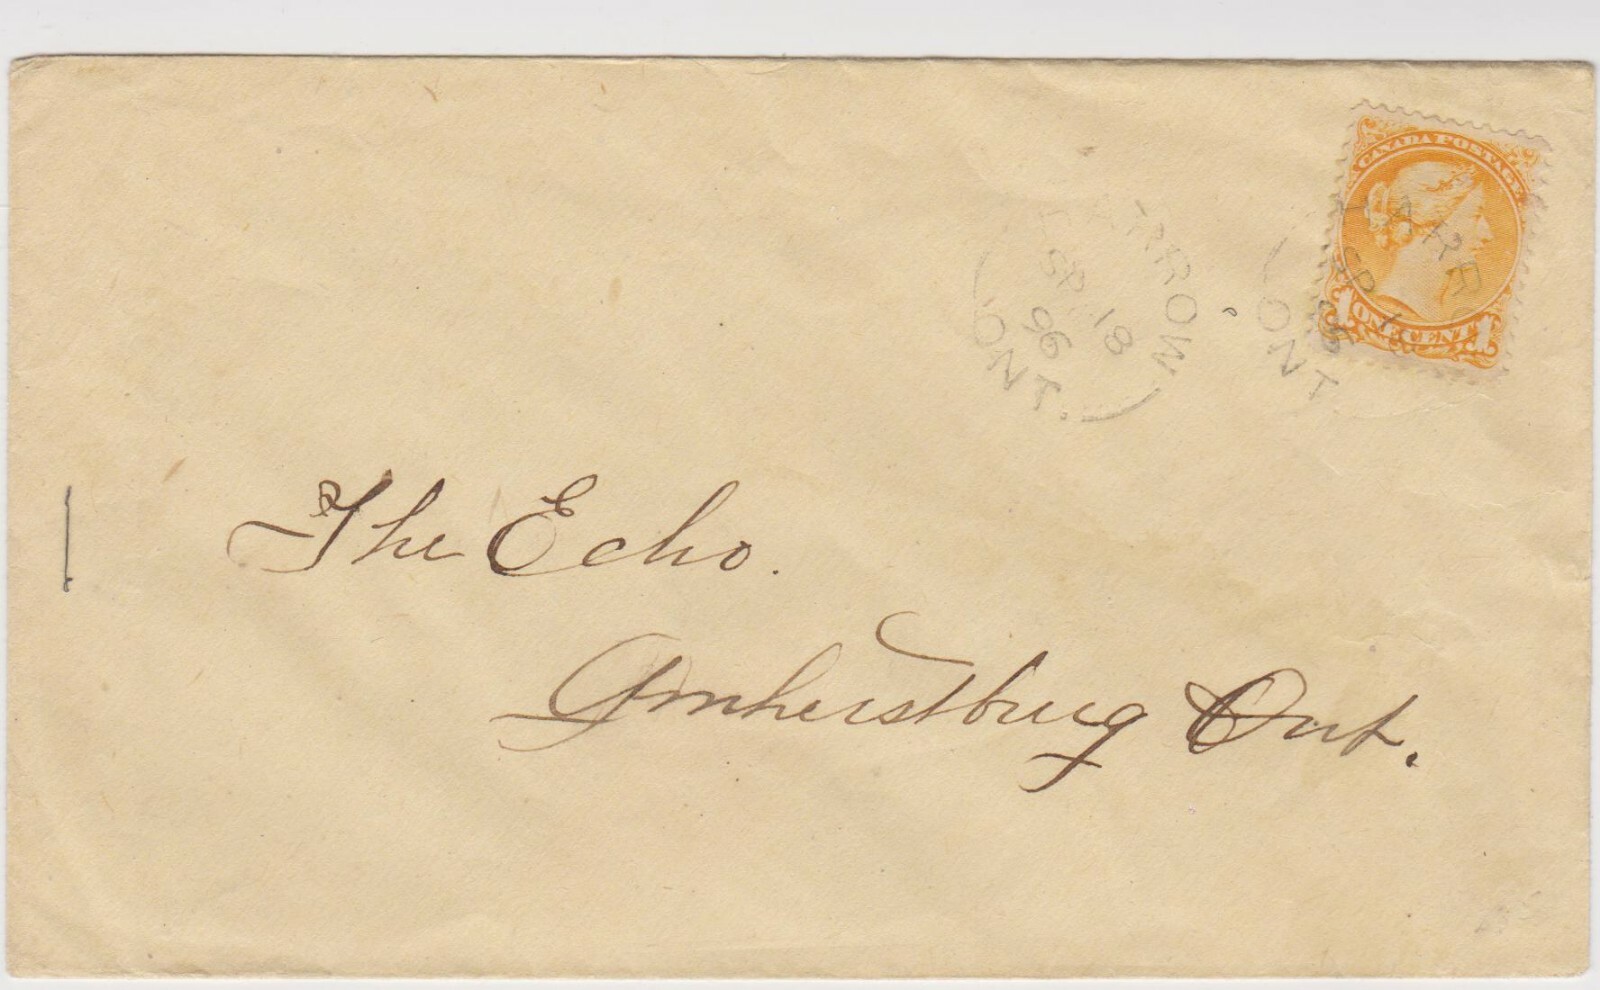 CANADA POSTAGE
1 ONE CENT 1
HARROW
SP 18
96
ONT.
HARR
SP 1
ONT
The Echo.
Amherstburg Ont.